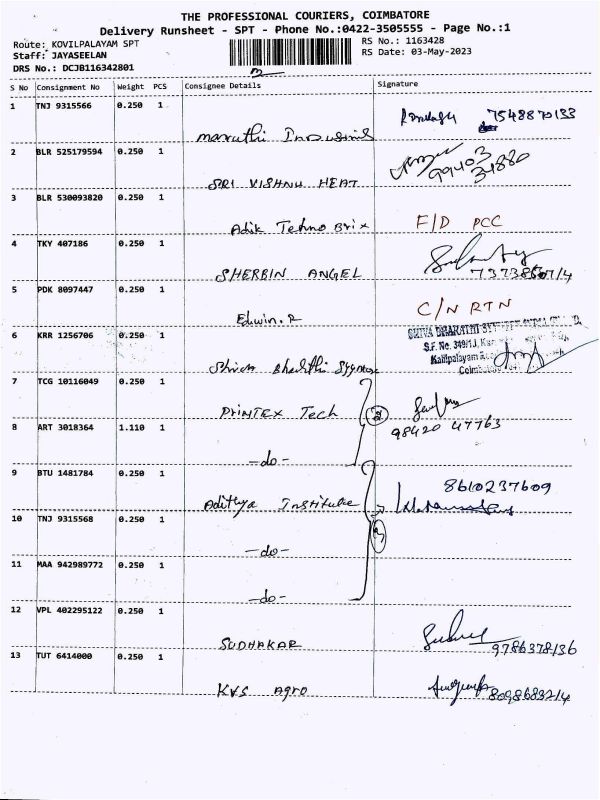 THE PROFESSIONAL COURIERS, COIMBATORE
Delivery Runsheet - SPT - Phone No.:0422-3505555 - Page No.:1
Route: KOVILPALAYAM SPT RS No.: 1163428
Staff: JAYASEELAN RS Date: 03-May-2023
DRS No.: DCJB116342801
S No Consignment No Weight PCS Consignee Details Signature
1 TNJ 9315566 0.250 1 7548870133
Maruthi
2 BLR 525179594 0.250 1 99403
SRI VISHNU HEAT 31880
3 BLR 530093820 0.250 1 F/D PCC
Adik Tehno Brix
4 TKY 407186 0.250 1
SHERBIN ANGEL
5 PDK 8097447 0.250 1 C/N RTN
Edwin.R
6 KRR 1256706 0.250 1 SHIVA BHARATHI
S.F. No. 349/1J,
Kalilpalayam
Shiva Bharathi
7 TCG 10116049 0.250 1
PRINTEX Tech 2
8 ART 3018364 1.110 1 98420 47763
-do-
9 BTU 1481784 0.250 1 8610237609
Adithya Institute
10 TNJ 9315568 0.250 1 3
-do-
11 MAA 942989772 0.250 1
-do-
12 VPL 402295122 0.250 1
SUDHAKAR 9786378136
13 TUT 6414000 0.250 1
KVS Agro 8098683214